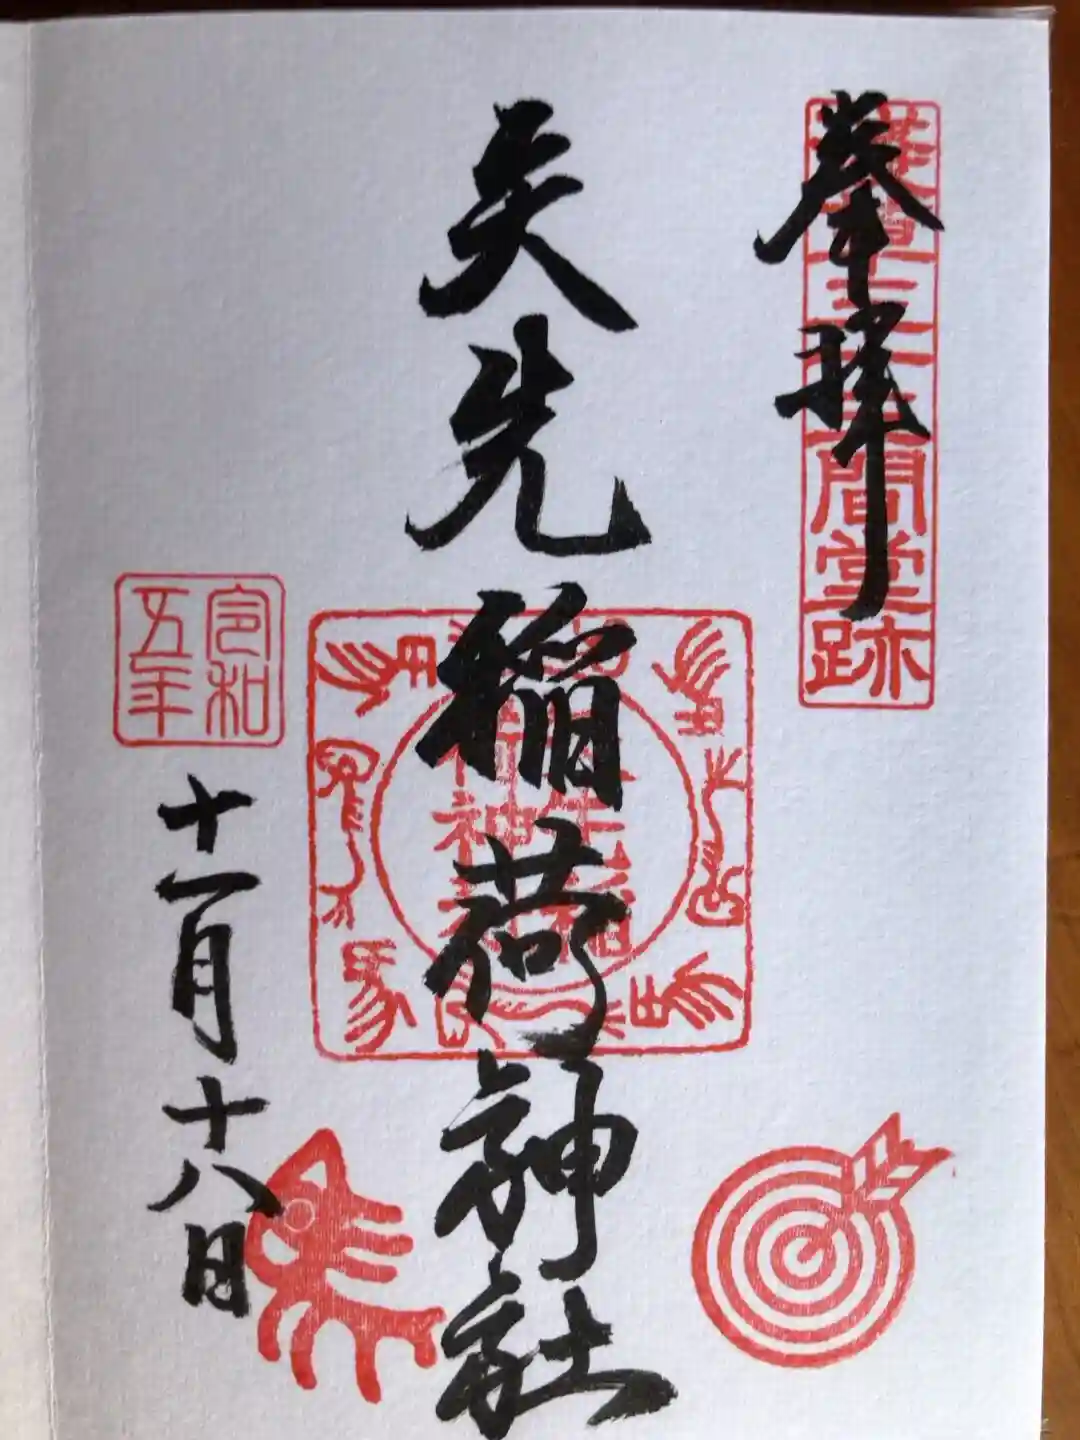 奉拝
浅草三十三間堂跡
矢先稲荷神社
令和
五年
十一月十八日